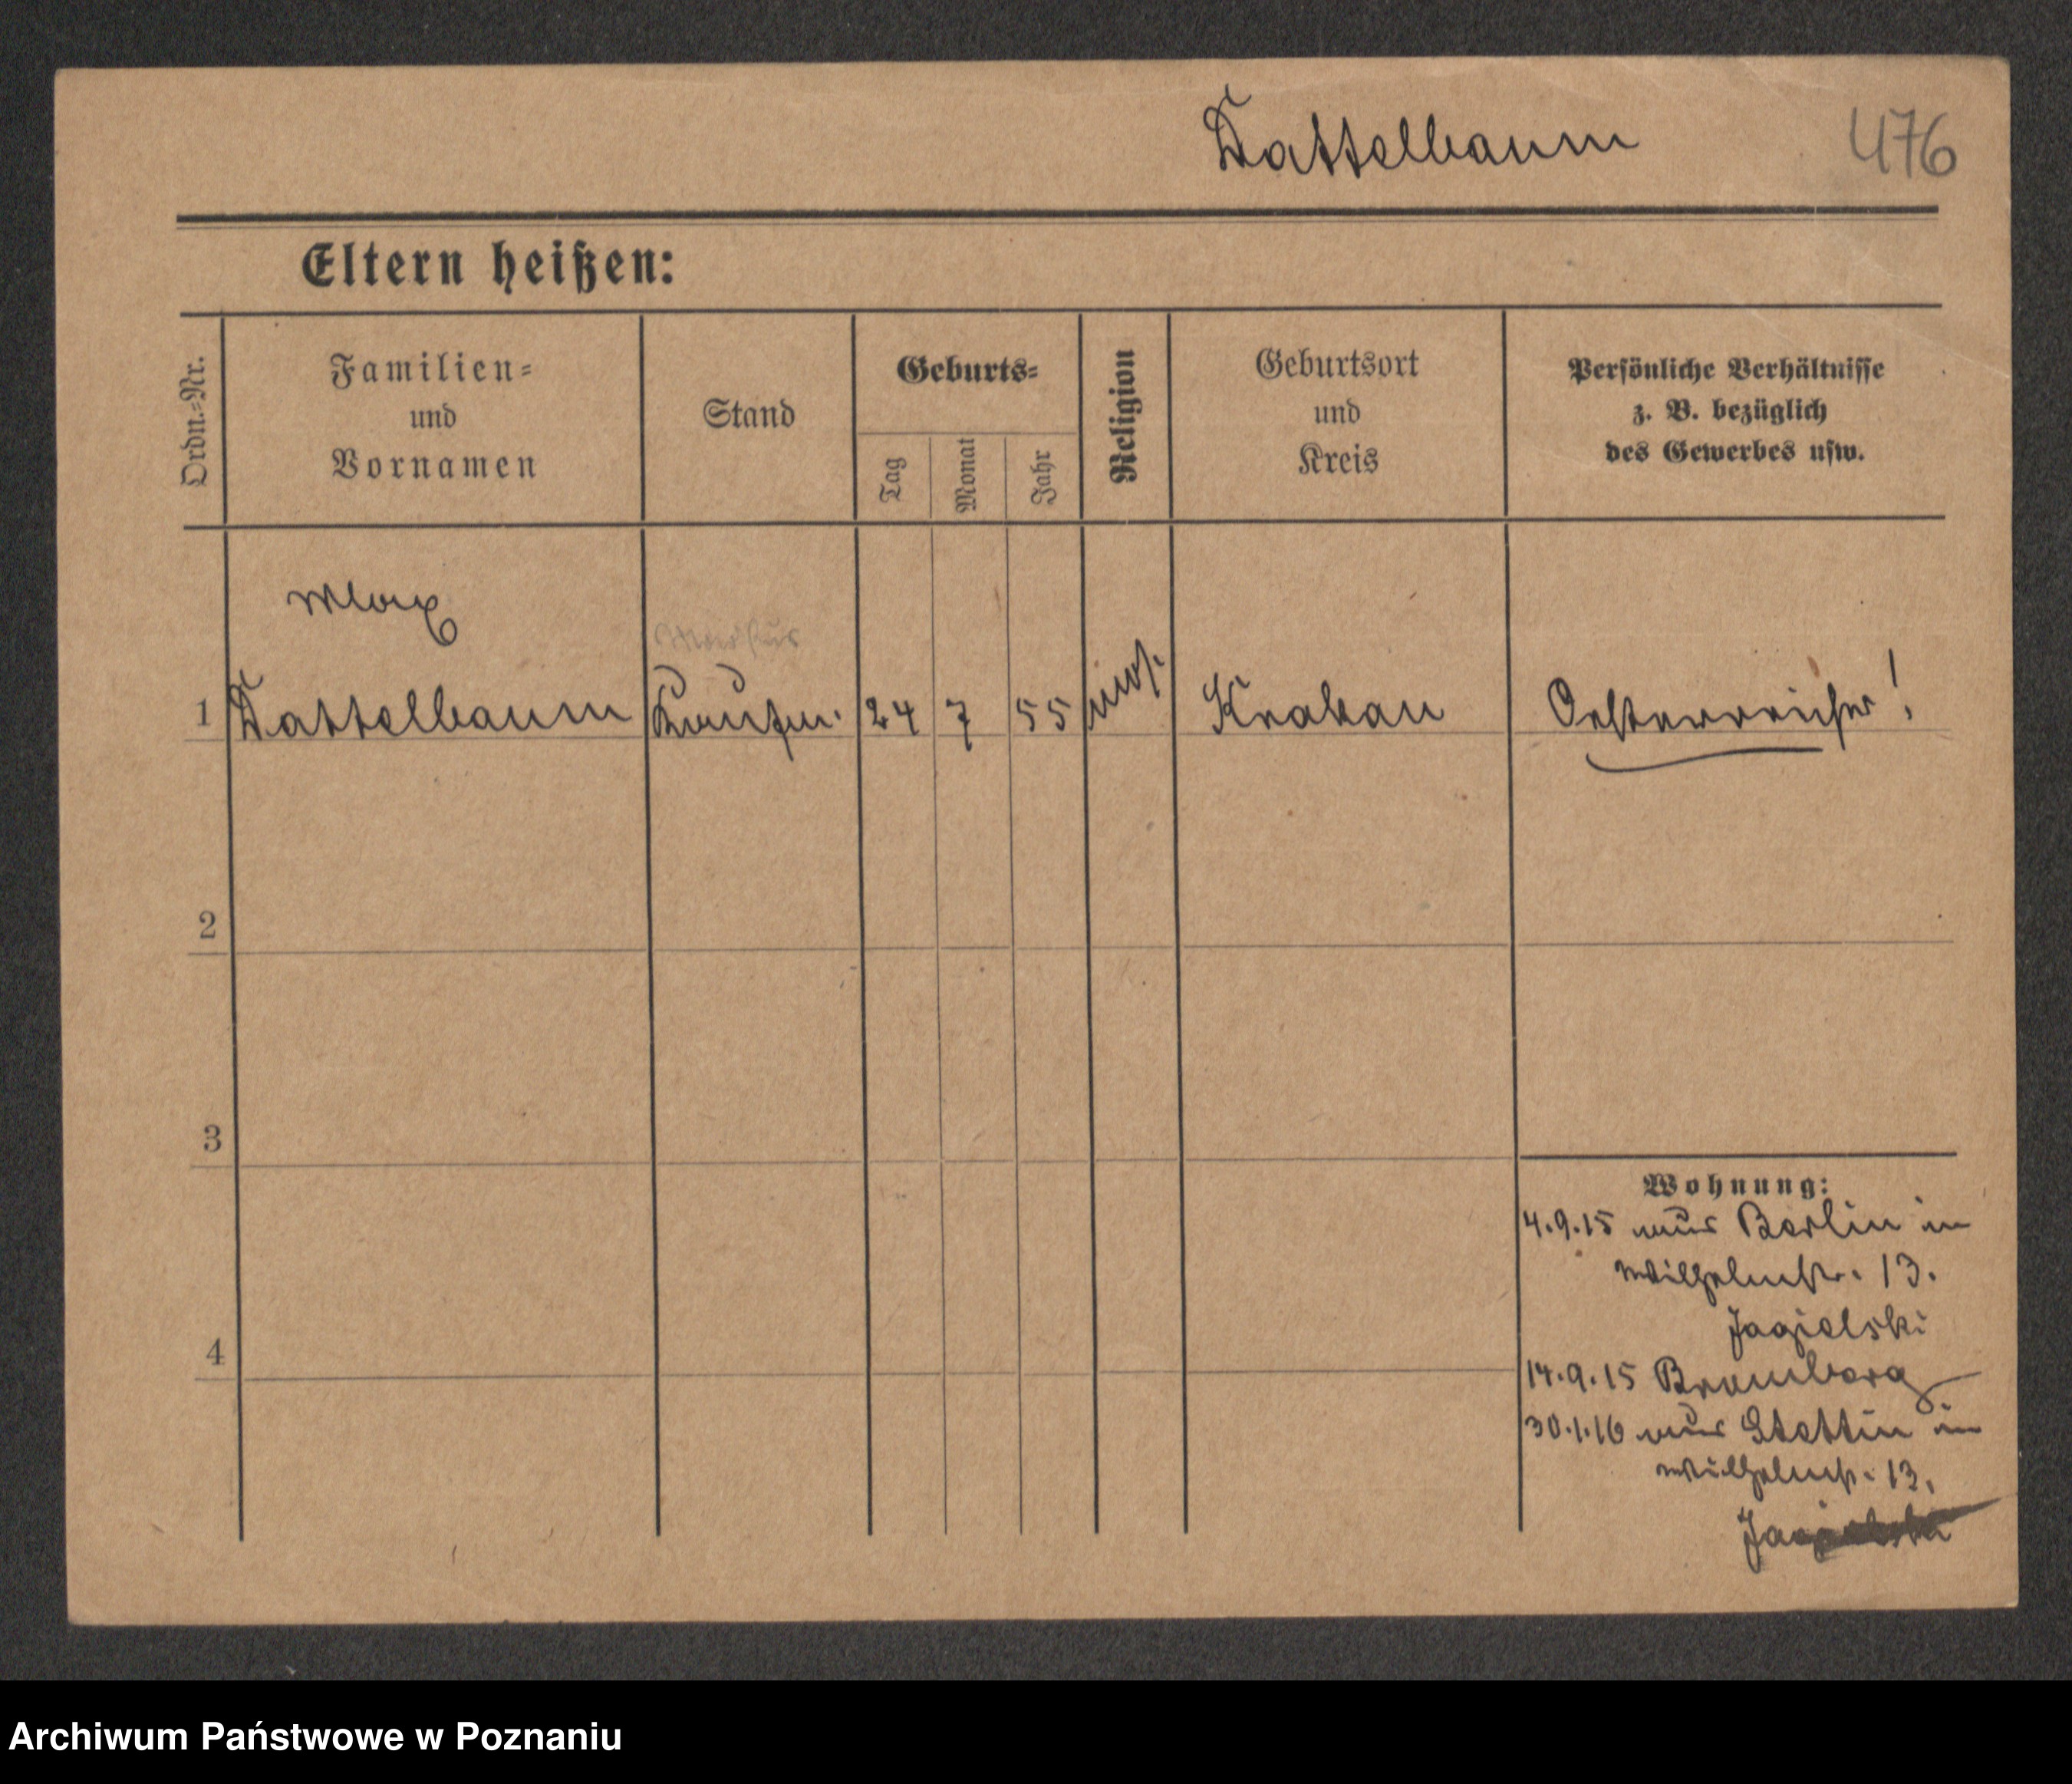 Dattelbaum 476
Eltern heißen:
Ordn.=Nr.
Familien=
und
Vornamen
Stand
Geburts=
Tag
Monat
Jahr
Religion
Geburtsort
und
Kreis
Persönliche Verhältnisse
z. B. bezüglich
des Gewerbes usw.
Max
1 Dattelbaum Kaufm. 24 7 55 mos. Krakau Oesterreicher!
2
3
4
Wohnung:
4.9.15 aus Berlin in
Wilhelmstr. 13.
Jagielski
14.9.15 Bromberg
30.1.16 aus Stettin in
Wilhelmstr. 13.
Jagielski
Archiwum Państwowe w Poznaniu